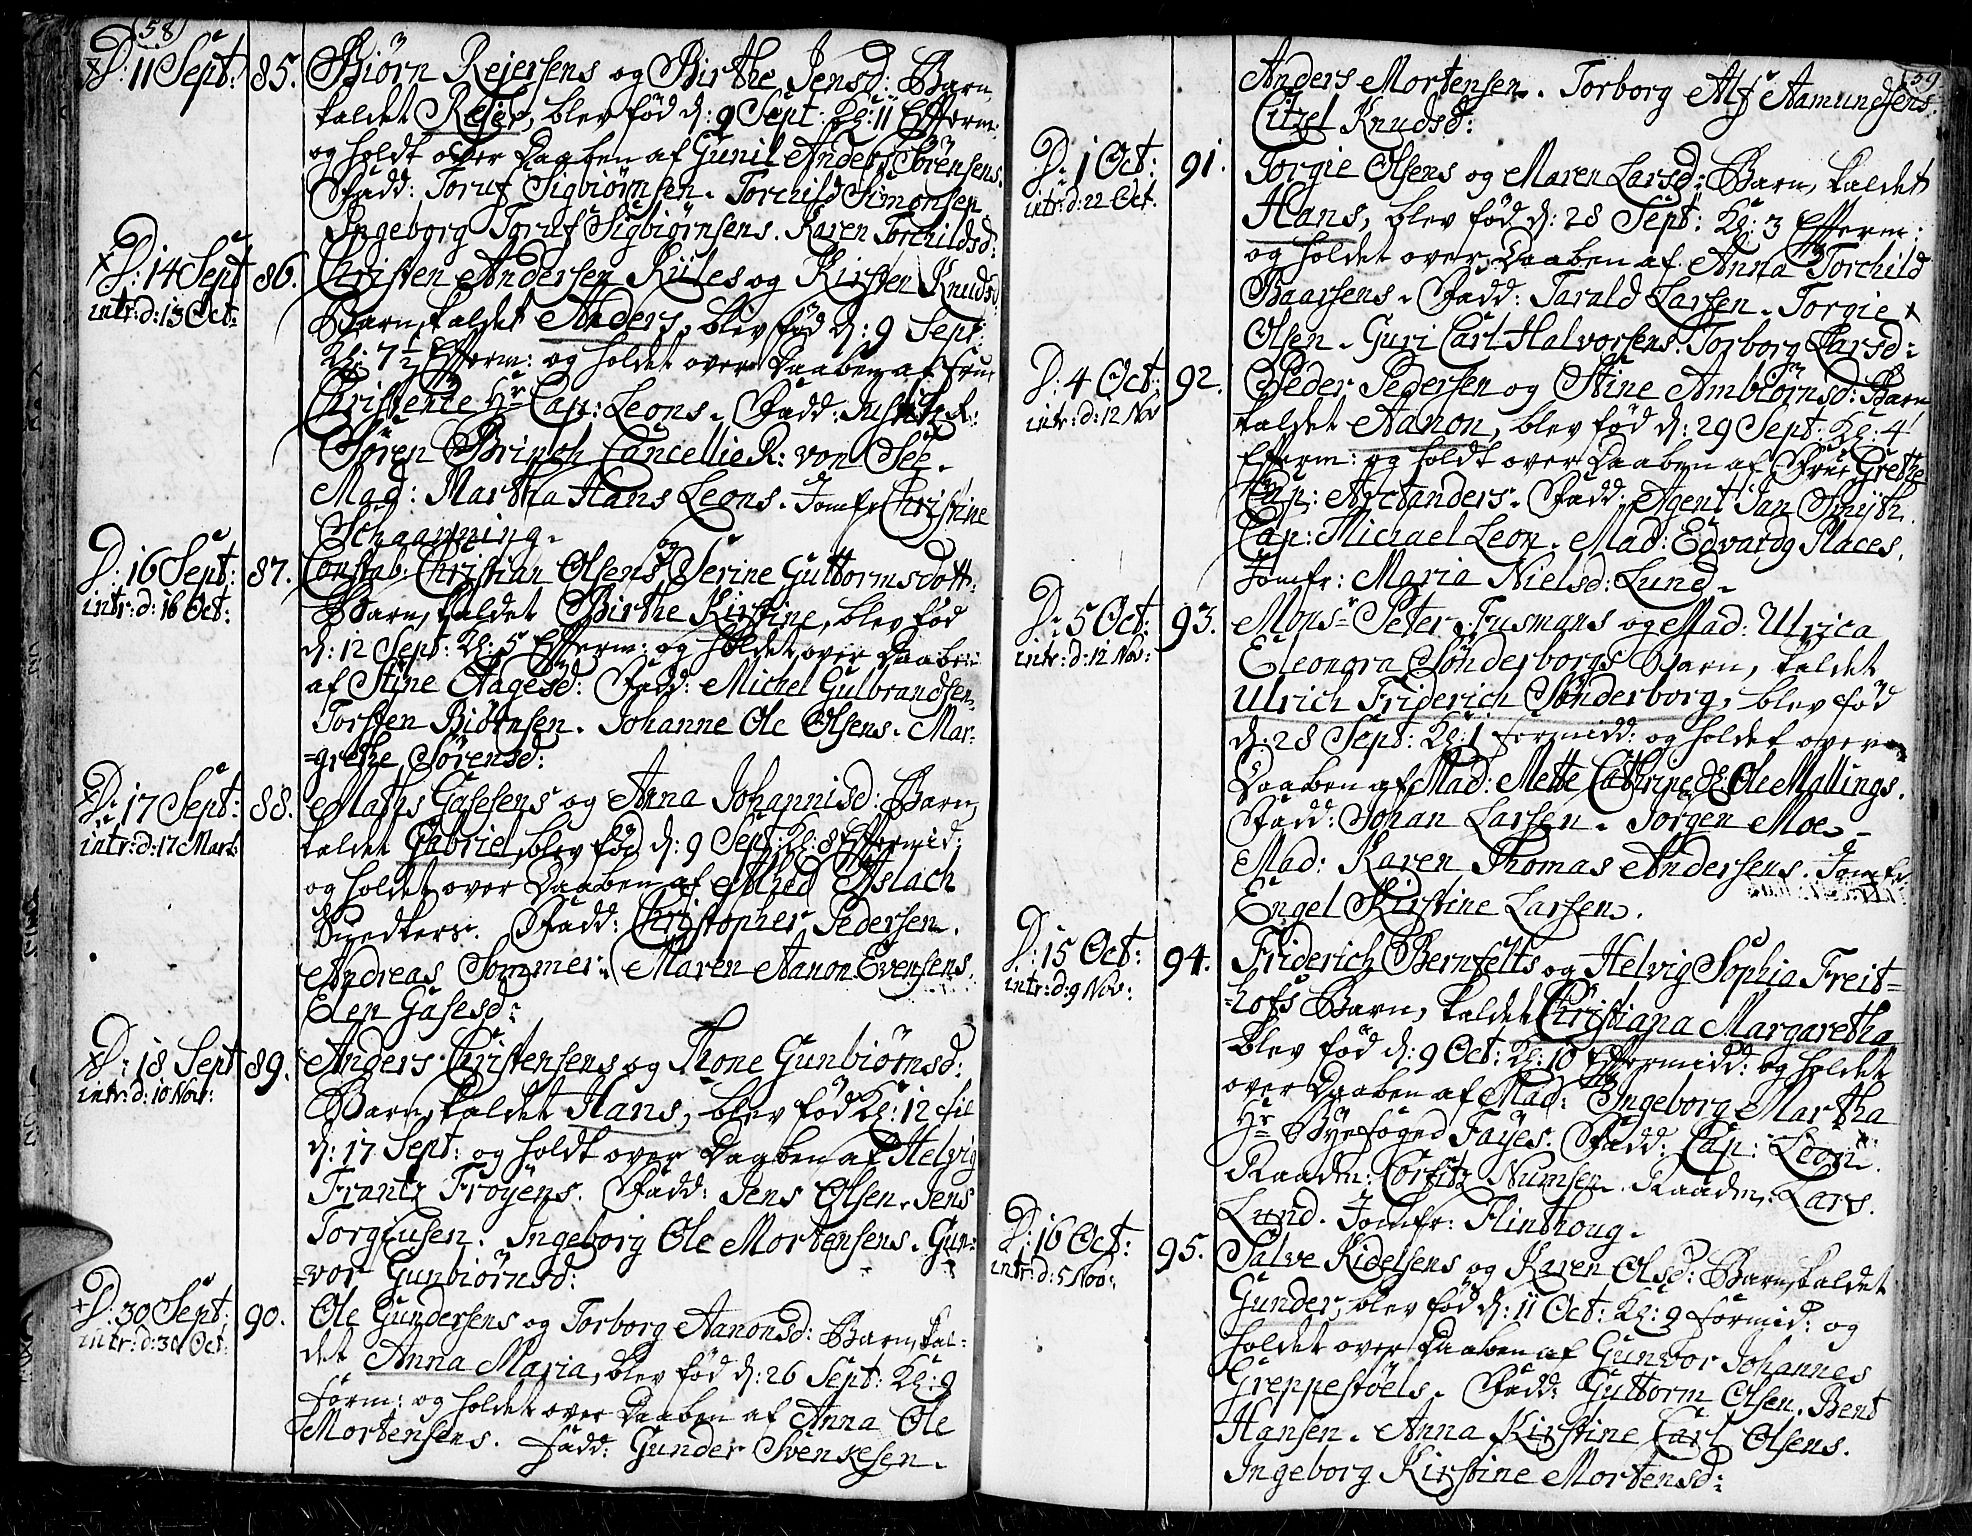 58
D: 11 Sept: 85. Biørn Rejersens og Birthe Jensd: Barn,
kaldet Rejer, blev fød d: 9 Sept: Kl: 11 Efterm:
og holdt over Daaben af Gunil Anders Sörensens.
Fadd: Toruf Sigbiörnsen. Torchild Simonsen
Ingeborg Toruf Sigbiörnsens. Karen Torchildsd:
D: 14 Sept 86. Christen Andersen Kiiles og Kirsten Knudsd:
intr: d: 13 Oct: Barn, kaldet Anders, blev fød d: 9 Sept:
Kl: 7 1/2 Efterm: og holdet over Daaben af Frue
Christence Hr Cap: Leons. Fadd: Justitz R:
Sören Brinch Cancellie R: von See.
Mad: Martha Hans Leons. Jomfr Christine
Schaanning.
D: 16 Sept: 87. Constab: Christian Olsens og Serine Guttormsdott:
intr: d: 16 Oct: Barn, kaldet Birthe Kirstine, blev fød
d: 12 Sept: Kl: 5 Efterm: og holdet over Daaben
af Stine Aagesd: Fadd: Michel Gulbrandsen,
Torsten Biörnsen. Johanne Ole Olsens. Mar-
=grethe Sörensd:
D: 17 Sept: 88. Mathis Gasesens og Anna Johannisd: Barn,
intr: d: 17 Mart: kaldet Gabriel, blev fød d: 9 Sept: Kl: 8 Eftermid:
og holdet over Daaben af Alhed Aslach
Snedkers. Fadd: Christopher Pedersen.
Andreas Sommer. Maren Aanon Evensens.
Elen Gasesd:
D: 18 Sept 89. Anders Christensens og Thone Gunbiörnsd:
intr: d: 10 Nov: Barn, kaldet Hans, blev fød Kl: 12 til
d: 17 Sept: og holdt over Daaben af Helvig
Frantz Fröyens. Fadd: Jens Olsen. Jens
Torgiusen. Ingeborg Ole Mortensens. Gun=
=vor Gunbiörnsd:
D: 30 Sept: 90. Ole Gundersens og Torborg Aanonsd: Barn, kal-
intr: d: 30 Oct: det Anna Maria, blev fød d: 26 Sept: Kl: 9
Form: og holdet over Daaben af Anna Ole
Mortensens. Fadd: Gunder Svenkesen.
59
Anders Mortensen. Torborg Alf Aamundsens.
Citzel Knudsd:
D: 1 Oct: 91. Torgie Olsens og Maren Larsd: Barn, kaldet
intr: d: 22 Oct. Hans, blev fød d: 28 Sept: Kl: 3 Efterm:
og holdet over Daaben af Anna Torchild
Baarsens. Fadd: Tarald Larsen. Torgie
Olsen. Guri Carl Halvorsens. Torborg Larsd:
D: 4 Oct: 92. Peder Pedersen og Stine Ambiörnsd: Barn
intr: d: 12 Nov kaldet Aanon, blev fød d: 29 Sept: Kl: 4
Efterm: og holdt over Daaben af Frue Grethe
Cap: Arctanders. Fadd: Agent Jan Smith.
Cap: Michael Leon. Mad: Edvardg Places.
Jomfr: Maria Nielsd: Lund.
D: 5 Oct: 93. Monsr Peter Fusmans og Mad: Ulrica
intr: d: 12 Nov: Eleonora Sönderborgs Barn, kaldet
Ulrich Friderich Sönderborg, blev fød
d: 28 Sept: Kl: 1 Formidd: og holdet over
Daaben af Mad: Mette Cathrine Ole Mallings.
Fadd: Johan Larsen. Jörgen Moe.
Mad: Karen Thomas Andersens. Jomfr:
Engel Kirstine Larsen.
D: 15 Oct: 94. Friderich Bernfelts og Helvig Sophia Freit=
intr: d: 9 Nov: =hofs Barn, kaldet Christiana Margaretha
blev fød d: 9 Oct: Kl: 10 Eftermidd: og holdet
over Daaben af Mad: Ingeborg Martha
Hr Byefoged Fayes. Fadd: Cap: Leon.
Raadm: Corfitz Numsen. Raadm: Lars
Lund. Jomfr: Flinthoug.
D: 16 Oct: 95. Salve Kidelsens og Karen Olsd: Barn, kaldet
intr: d: 5 Nov: Gunder, blev fød d: 11 Oct: Kl: 9 Formid: og
holdet over Daaben af Gunvor Johannes
Greppestöels. Fadd: Guttorm Olsen. Bent
Hansen. Anna Kirstine Carl Olsens.
Ingeborg Kirstine Mortensd: